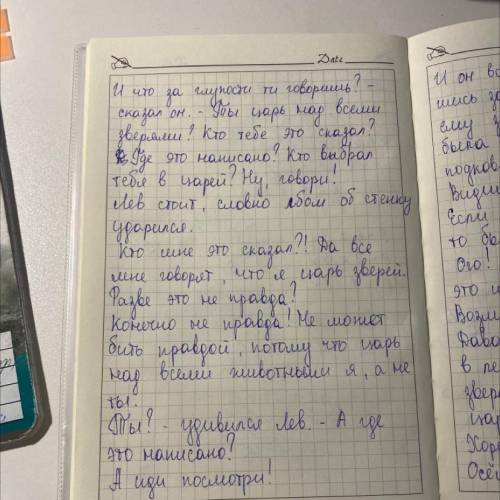 Date
И что за глупости ти говоришь? -
сказал он. - Ты царь над всеми
зверями? Кто тебе это сказал?
Где это написано? Кто выбрал
тебя в царей? Ну, говори!
Лев стоит, словно лбом об стенку
ударился.
Кто мне это сказал?! Да все
мне говорят, что я царь зверей.
Разве это не правда?
Конечно не правда! Не может
бить правдой, потому что царь
над всеми животными я, а не
ты.
Ты? - удивился Лев. - А где
это написано?
А иди посмотри!
И он
была
Если
Ого!
в